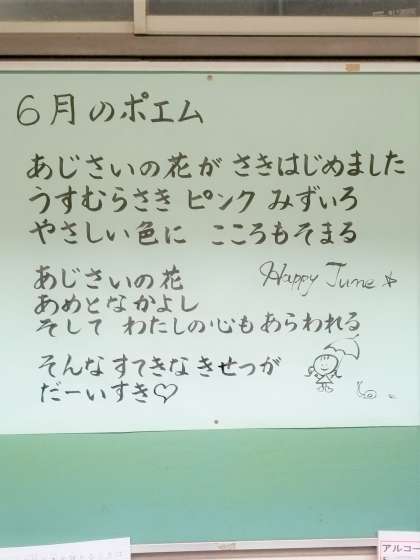 6月のポエム
あじさいの花が さきはじめました
うすむらさき ピンク みずいろ
やさしい色に こころもそまる
あじさいの花
あめとなかよし
そして わたしの心もあらわれる
Happy June
そんなすてきなきせつが
だーいすき♡
アルコー